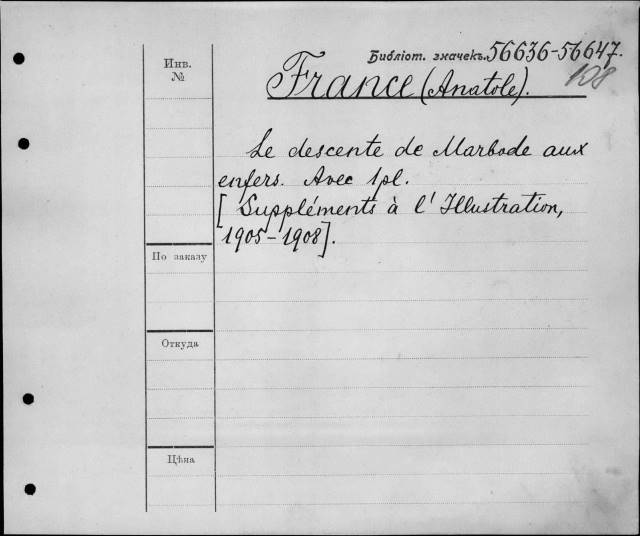 Библіот. значекъ. 56636-56647.
108
Инв.
№
France (Anatole).
Le descente de Marbode aux
enfers. Avec 1 pl.
[Suppléments à l'Illustration,
1905-1908].
По заказу
Откуда
Цѣна